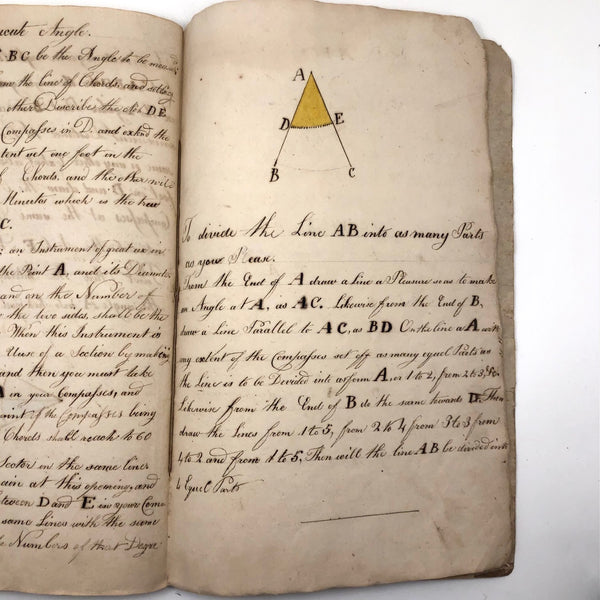 cute Angle.
BC be the Angle to be meas
the line of Chords, and setting
other Describe the Arch DE
Compasses in D. and extend the
tent set one foot in the
Chords, and the other will
Minutes which is the true
C.
an Instrument of great use in
the Point A, and its Diameter
and on the Number
the two sides, shall be the
When this Instrument is
Use of a Section by making
and then you must take
A in your Compasses, and
point of the Compasses being
Chords shall reach to 60
Sector in the same lines
at this opening, and
between D and E in your Com
same Lines with the same
Numbers of that Degre
A
D
E
B
C
To divide the Line AB into as many Parts
as you Please.
From the End of A draw a Line a Pleasure so as to make
an Angle at A, as AC. Likewise from the End of B,
draw a Line Parallel to AC, as BD On the line a A with
any extent of the Compasses set off as many equel Parts as
the Line is to be Divided into as from A, or 1 to 2, from 2 to 3, &c
Likewise from the End of B do the same towards D. Then
draw the Lines from 1 to 5, from 2 to 4 from 3 to 3 from
4 to 2 and from 1 to 5, Then will the line AB be divided into
Equel Parts